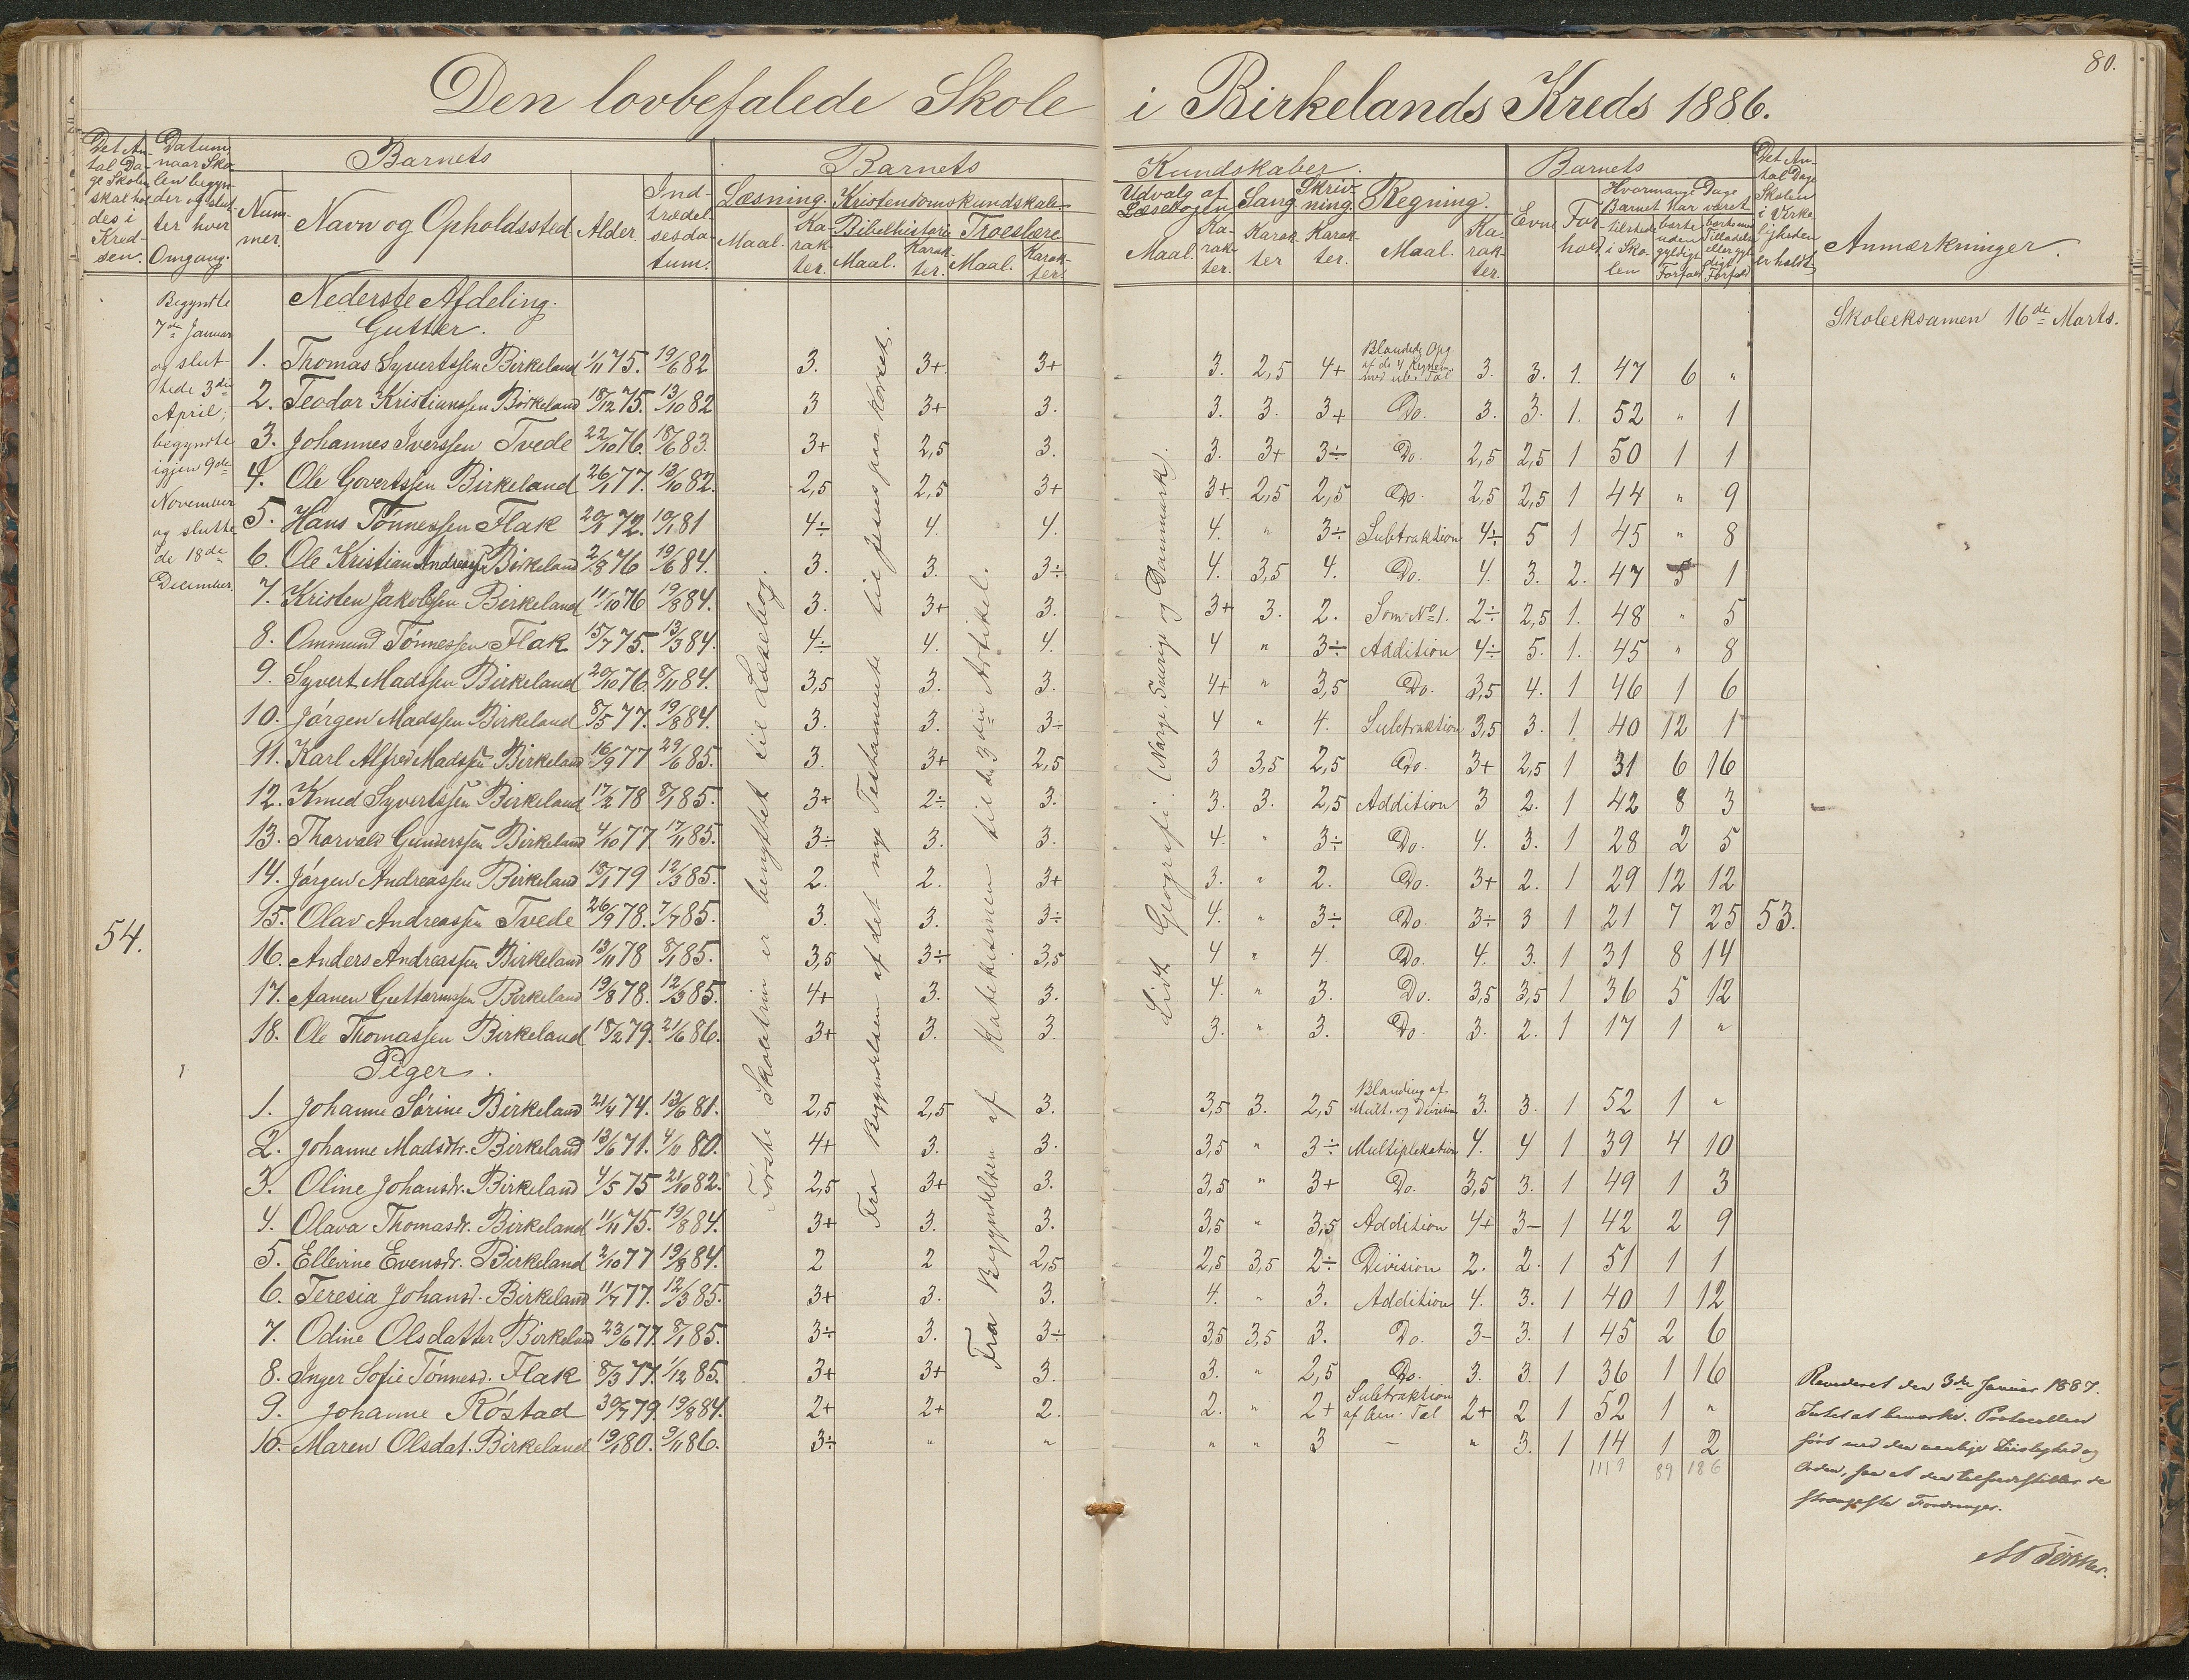 80.
Den lovbefalede Skole i Birkelands Kreds 1886.
Det Antal Dage Skolen skal holdes i Kredsen.
Datum, naar Skolen begynder og slutter hver Omgang.
Barnets
Nummer.
Navn og Opholdssted
Alder.
Indtrædelsesdatum.
Barnets Kundskaber.
Læsning.
Maal.
Karakter.
Kristendomskundskab
Bibelhistorie
Maal.
Karakter.
Troeslære
Maal.
Karakter.
Udvalg af Læsebogen
Maal.
Karakter.
Sang
Karakter
Skrivning.
Karakter.
Regning.
Maal.
Karakter.
Barnets
Evne
Forhold
Hvormange Dage Barnet har været
tilstede i Skolen
borte uden gyldigt Forfald
borte med Tilladelse eller gyldigt Forfald
Det Antal Dage Skolen i Virkeligheden er holdt
Anmærkninger.
Begyndte 7de Januar og sluttede 3de April, begyndte igjen 9de November og sluttede 18de December.
54.
53.
Første Skoletrin er benyttet til Læsebog.
Fra Begyndelsen af det nye Testamente til Jesus paa korset.
Fra Begyndelsen af Katekismen til den 3die Artikel.
Lidt Geografi. (Norge, Sverige og Danmark).
Skoleeksamen 16de Marts.
Nederste Afdeling.
Gutter.
1. Thomas Syvertssen Birkeland 1/11 75. 19/6 82 3. 3+ 3+ 3. 2,5 4+ Blandede Opg. af de 4 Regnem. med ube. Tal 3. 3. 1. 47 6 "
2. Teodor Kristianssen Birkeland 18/12 75. 13/10 82 3 3+ 3. 3. 3. 3+ Do. 3. 3. 1. 52 " 1
3. Johannes Iverssen Tvede 22/10 76. 18/6 83. 3+ 2,5 3. 3. 3+ 3÷ Do. 2,5 2,5 1 50 1 1
4. Ole Govertssen Birkeland 26/1 77. 13/10 82. 2,5 2,5 3+ 3+ 2,5 2,5 Do. 2,5 2,5 1 44 " 9
5. Hans Tønnessen Flak 20/1 72. 10/1 81 4÷ 4. 4. 4. " 3÷ Subtraktion 4÷ 5 1 45 " 8
6. Ole Kristian Andreass. Birkeland 2/8 76 19/6 84. 3. 3. 3÷ 4. 3,5 4. Do. 4. 3. 2. 47 5 1
7. Kristen Jakobssen Birkeland 11/10 76 19/8 84. 3. 3+ 3. 3+ 3. 2. Som No 1. 2÷ 2,5 1. 48 " 5
8. Ommund Tønnessen Flak 15/7 75. 13/3 84. 4÷ 4. 4. 4 " 3÷ Addition 4÷ 5. 1. 45 " 8
9. Syvert Madssen Birkeland 20/10 76. 8/11 84. 3,5 3. 3. 4+ " 3,5 Do. 3,5 4. 1 46 1 6
10. Jørgen Madssen Birkeland 8/5 77. 19/8 84. 3. 3. 3÷ 4 " 4. Subtraktion 3,5 3. 1. 40 12 1
11. Karl Alfred Madssen Birkeland 16/9 77 29/6 85. 3. 3+ 2,5 3 3,5 2,5 Do. 3+ 2,5 1 31 6 16
12. Knud Syvertssen Birkeland 17/2 78 8/1 85. 3+ 2÷ 3. 3. 3. 2,5 Addition 3 2. 1 42 8 3
13. Thorvald Gunderssen Birkeland 4/10 77. 17/11 85. 3÷ 3. 3. 4. " 3÷ Do. 4. 3. 1 28 2 5
14. Jørgen Andreassen Birkeland 18/1 79 12/3 85. 2. 2. 3+ 3. " 2. Do. 3+ 2. 1 29 12 12
15. Olav Andreassen Tvede 26/9 78. 7/7 85. 3. 3. 3÷ 4. " 3÷ Do. 3÷ 3 1 21 7 25
16. Anders Andreassen Birkeland 13/11 78 8/1 85. 3,5 3÷ 3,5 4 " 4. Do. 4. 3. 1 31 8 14
17. Aanen Guttormssen Birkeland 19/8 78. 12/3 85. 4+ 3. 3. 4. " 3. Do. 3,5 3,5 1 36 5 12
18. Ole Thomassen Birkeland 18/2 79. 21/6 86. 3+ 3. 3. 3. " 3. Do. 3. 2. 1 17 1 "
Piger.
1. Johanne Sørine Birkeland 21/4 74. 13/6 81. 2,5 2,5 3. 3,5 3. 2,5 Blanding af Mult. og Division 3. 3. 1 52 1 "
2. Johanne Madsdtr. Birkeland 13/6 71. 4/11 80. 4+ 3. 3. 3,5 " 3÷ Multiplikation 4. 4 1 39 4 10
3. Oline Johansdr. Birkeland 4/5 75 21/10 82. 2,5 3+ 3. 3,5 " 3+ Do. 3,5 3. 1 49 1 3
4. Olava Thomasdr. Birkeland 11/11 75. 19/8 84. 3+ 3. 3. 3,5 " 3,5 Addition 4+ 3- 1 42 2 9
5. Ellevine Evensdr. Birkeland 2/10 77 19/8 84. 2 2 2,5 2,5 3,5 2÷ Division 2. 2. 1 51 1 1
6. Teresia Johansd. Birkeland 11/7 77. 12/3 85. 3+ 3. 3. 4. " 3. Addition 4. 3. 1 40 1 12
7. Odine Olsdatter Birkeland 23/6 77. 8/1 85. 3÷ 3. 3÷ 3,5 3,5 3. Do. 3- 3. 1 45 2 6
8. Inger Sofie Tønnesd. Flak 8/3 77. 1/12 85. 3+ 3+ 3. 3. " 2,5 Do. 3. 3. 1 36 1 16
9. Johanne Røstad 30/7 79. 19/8 84. 2+ 2+ 2. 2. " 2+ Subtraktion af Ben. Tal 2+ 2 1 52 1 "
10. Maren Olsdat. Birkeland 19/1 80. 9/11 86. 3÷ " " " " 3 - " 3. 1 14 1 2
1119 89 186
Revideret den 3de Januar 1887.
Intet at bemærke. Protocollen
ført med den vanlige Tiirlighed og
Orden, saa at den tilfredsstiller de
strængeste Fordringer.